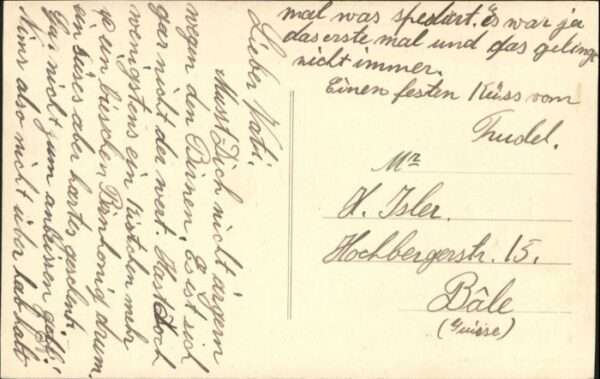 Lieber Vati.
Must Dich nicht ärgern
wegen den Birnen. Es ist sich
gar nicht der wert. Hast doch
wenigstens ein Kistchen mehr
ein bischen Birnhonig drum.
ein süses aber hartes geschenk.
Gar nicht zum anbeissen gell!
Nims also nicht übel hab halt
mal was spediert. Es war ja
das erste mal und das gelingt
nicht immer.
Einen festen Küss vom
Trudel.
Mr
H. Isler.
Hochbergerstr. 15.
Bâle
(Suisse)